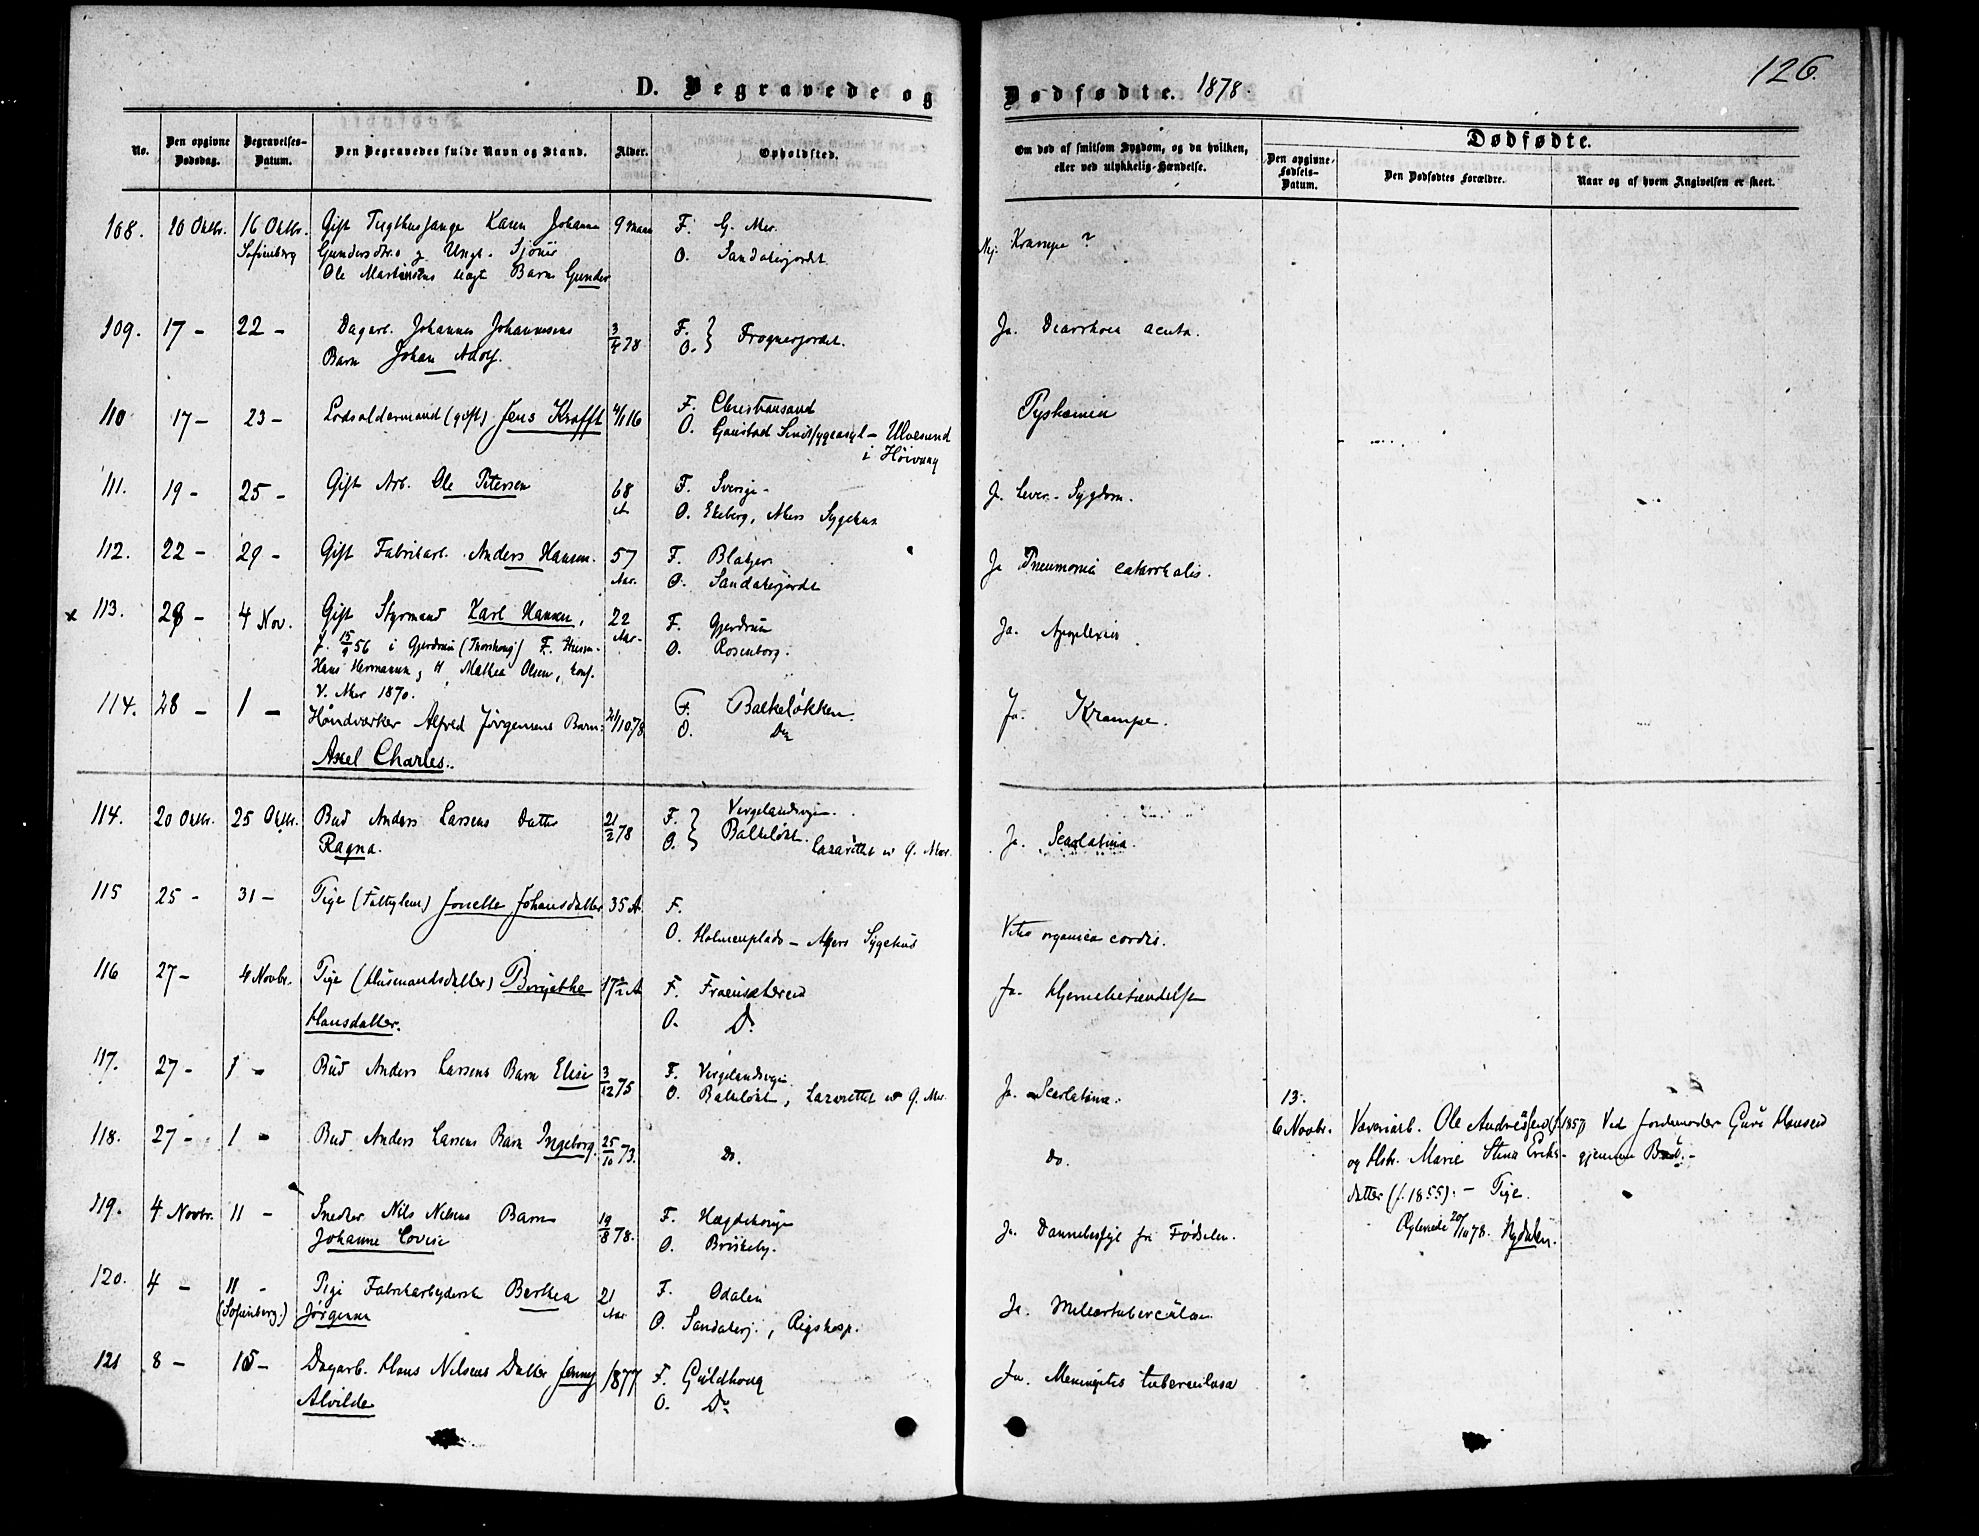 126.
D. Begravede og Dødfødte. 1878.
No.
Den opgivne Dødsdag.
Begravelses-Datum.
Den Begravedes fulde Navn og Stand.
Alder.
Opholdsted.
Om død af smitsom Sygdom, og da hvilken, eller ved ulykkelig Hændelse.
Dødfødte.
Den opgivne Fødsels-Datum.
Den Dødfødtes Forældre.
Naar og af hvem Angivelsen er skeet.
108. 10 Oktbr. 16 Oktbr. Gift Tugthusfange Karen Johanne 9 Maan F. G. Aker.
Sofienberg Gundersdtr. og Ungk. Sjøm. O. Sandakerjordet Nej. Krampe ?
Ole Martinsens uægt Barn Gunder
109. 17 - 22 - Dagarb. Johannes Johannesens 3/4 78 F. } Frognerjordet. Ja. Diarrhoea acuta.
Barn Johan Adolf. O. }
110 17 - 23 - Lodsoldermand (gift) Jens Krafft 4/1 16 F. Christiansand Pyskæmia
O. Gaustad Sindssygeasyl - Ulvesund
i Høivaag
111. 19 - 25 - Gift Arb. Ole Petersen 68 F. Sverige - J. Lever-Sygdom.
A O. Ekeberg, Akers Sygehus
112. 22 - 29 - Gift Fabrikarb. Anders Hansen. 57 F. Blakjer Ja Pneumonia catarrhalis.
Aar. O. Sandakerjordet
x 113. 28 - 4 Nov. Gift Styrmand Karl Hansen, 22 F. Gjerdrum Ja. Apoplexia
f. 15/9 56 i Gjerdrum (Thorshoug) F. Husm. Aar- O. Rosenborg.
Hans Hermansen, M Mathea Olsen, konf.
V. Aker 1870.
114. 28 - 1 - Håndværker Alfred Jørgensens Barn: 21/10 78 F. Balkeløkken. Ja. Krampe.
Axel Charles. O. Do
114. 20 Oktbr. 25 Oktbr. Bud Anders Larsens Datter 21/2 78 F. } Vergelandsvejen.
Ragna. O. } Balkeløk. Lazarettet v G. Aker. Ja. Scarlatina.
115 25 - 31 - Pige (Fattiglem) Jonette Johansdatter 35 A F.
O. Holmenplads - Akers Sygehus Vitia organica cordis.
116 27 - 4 Novbr. Pige (Husmandsdatter) Birgithe 17 1/2 A F. Frænsæter Ja. Hjernebetændelse
Hansdatter. O. Do
117. 27 - 1 - Bud Anders Larsens Barn Elise 3/12 75 F. Vergelandsvejen Ja. Scarlatina.
O. Balkeløk, Lazarettet v G. Aker.
118. 27 - 1 - Bud Anders Larsens Barn Ingeborg. 25/10 73. Do. do.
13.
6 Novbr. Væveriarb. Ole Andreassen (f. 1857) Ved Jordemoder Guri Hansen
og Hstr. Marie Stina Eriks- gjennem Bud. -
datter (f. 1855). - Pige.
Ægteviede 20/10 78. Nydalen.
119. 4 Novbr. 11 - Snedker Nils Nilsens Barn 19/8 78. F. Hægdehougen
Johanne Lovise O. Briskeby. Ja. Dannelsesfejl fra Fødselen.
120. 4 - 11 - Pige Fabrikarbejderske Berthea 21 F. Odalen
(Sofienberg.) Jørgensen Aar O. Sandakerj., Rigshosp. Ja. Miliærtuberculose
121 8 - 15 - Dagarb. Hans Nilsens Datter Jenny 1877 F. Guldhoug Ja. Meningitis tuberculosa
Alvilde O. Do